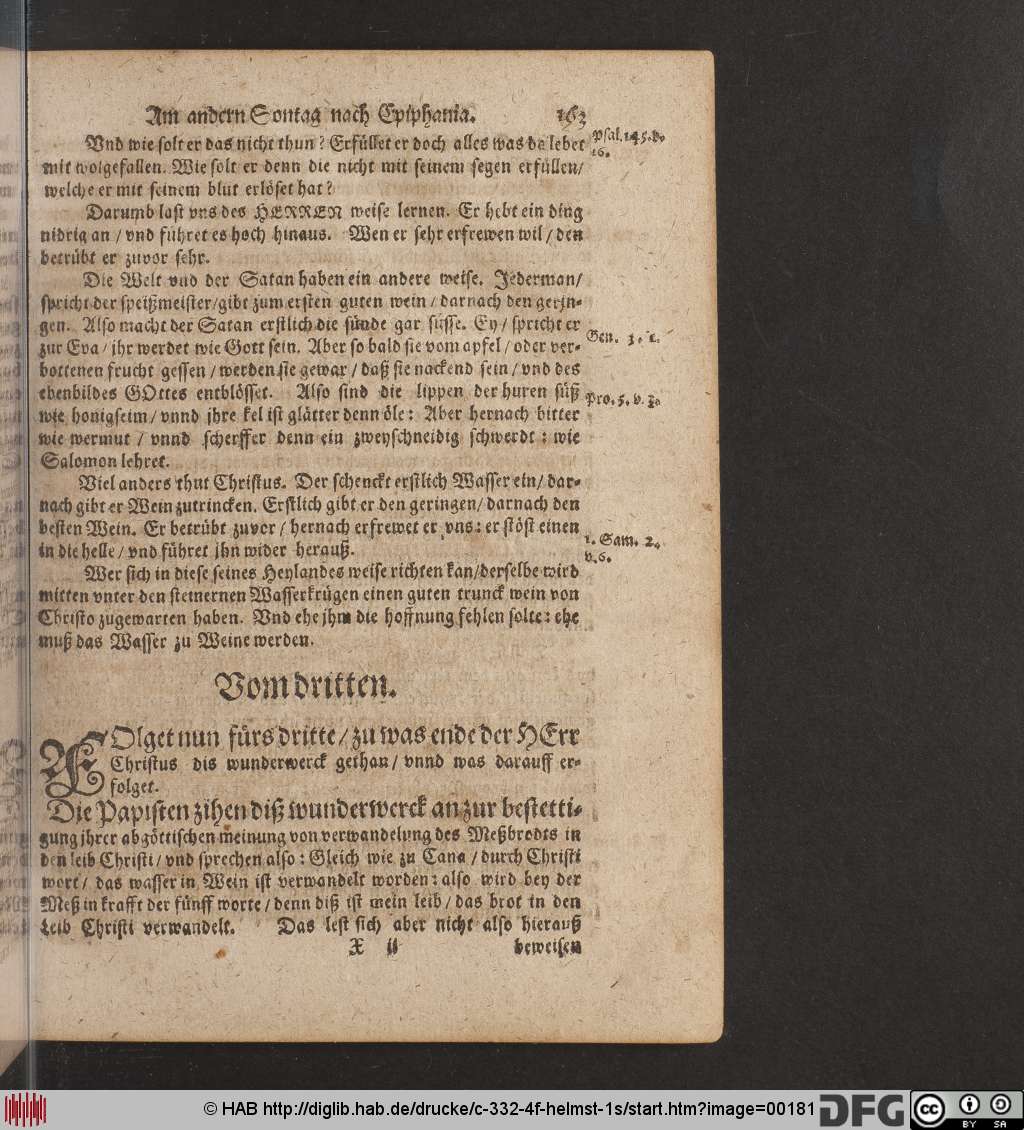 Am andern Sontag nach Epiphania. 163
Vnd wie solt er das nicht thun? Erfüllet er doch alles was da lebet
Psal. 145. v.
16.
mit wolgefallen. Wie solt er denn die nicht mit seinem segen erfüllen/
welche er mit seinem blut erlöset hat?
Darumb last vns des HERREN weise lernen. Er hebt ein ding
nidrig an / vnd führet es hoch hinaus. Wen er sehr erfrewen wil / den
betrübt er zuvor sehr.
Die Welt vnd der Satan haben ein andere weise. Jederman/
spricht der speißmeister/gibt zum ersten guten wein / darnach den gerin-
gen. Also macht der Satan erstlich die sünde gar süsse. Ey / spricht er
Gen. 3.
zur Eva / jhr werdet wie Gott sein. Aber so bald sie vom apfel / oder ver-
bottenen frucht gessen / werden sie gewar / daß sie nackend sein / vnd des
ebenbildes GOttes entblösset. Also sind die lippen der huren süß
Pro. 5. v. 3.
wie honigseim / vnnd jhre kel ist glätter denn öle: Aber hernach bitter
wie wermut / vnnd scherffer denn ein zweyschneidig schwerdt: wie
Salomon lehret.
Viel anders thut Christus. Der schenckt erstlich Wasser ein / dar-
nach gibt er Wein zutrincken. Erstlich gibt er den geringen / darnach den
besten Wein. Er betrübt zuvor / hernach erfrewet er vns: er stöst einen
1. Sam. 2.
v. 6.
in die helle / vnd führet jhn wider herauß.
Wer sich in diese seines Heylandes weise richten kan/derselbe wird
mitten vnter den steinernen Wasserkrügen einen guten trunck wein von
Christo zugewarten haben. Vnd ehe jhm die hoffnung fehlen solte: ehe
muß das Wasser zu Weine werden.
Vom dritten.
FOlget nun fürs dritte / zu was ende der HErr
Christus dis wunderwerck gethan / vnnd was darauff er-
folget.
Die Papisten zihen diß wunderwerck an zur bestetti-
gung jhrer abgöttischen meinung von verwandelung des Meßbrodts in
den leib Christi / vnd sprechen also: Gleich wie zu Cana / durch Christi
wort / das wasser in Wein ist verwandelt worden: also wird bey der
Meß in krafft der fünff worte / denn diß ist mein leib / das brot in den
Leib Christi verwandelt. Das lest sich aber nicht also hierauß
X ij beweisen
© HAB http://diglib.hab.de/drucke/c-332-4f-helmst-1s/start.htm?image=00181
DFG
cc
BY SA